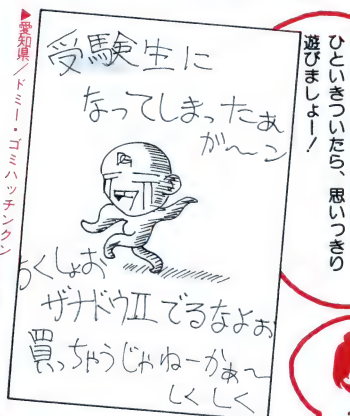 ひといきついたら、思いっきり
遊びましょー!
受験生に
なってしまったぁ
が〜〜ン
ちくしょお
ザナドゥⅡでるなよぉ
買っちゃうじゃねーかぁ〜
しくしく
▶愛知県/ドミー・ゴミハッチンクン